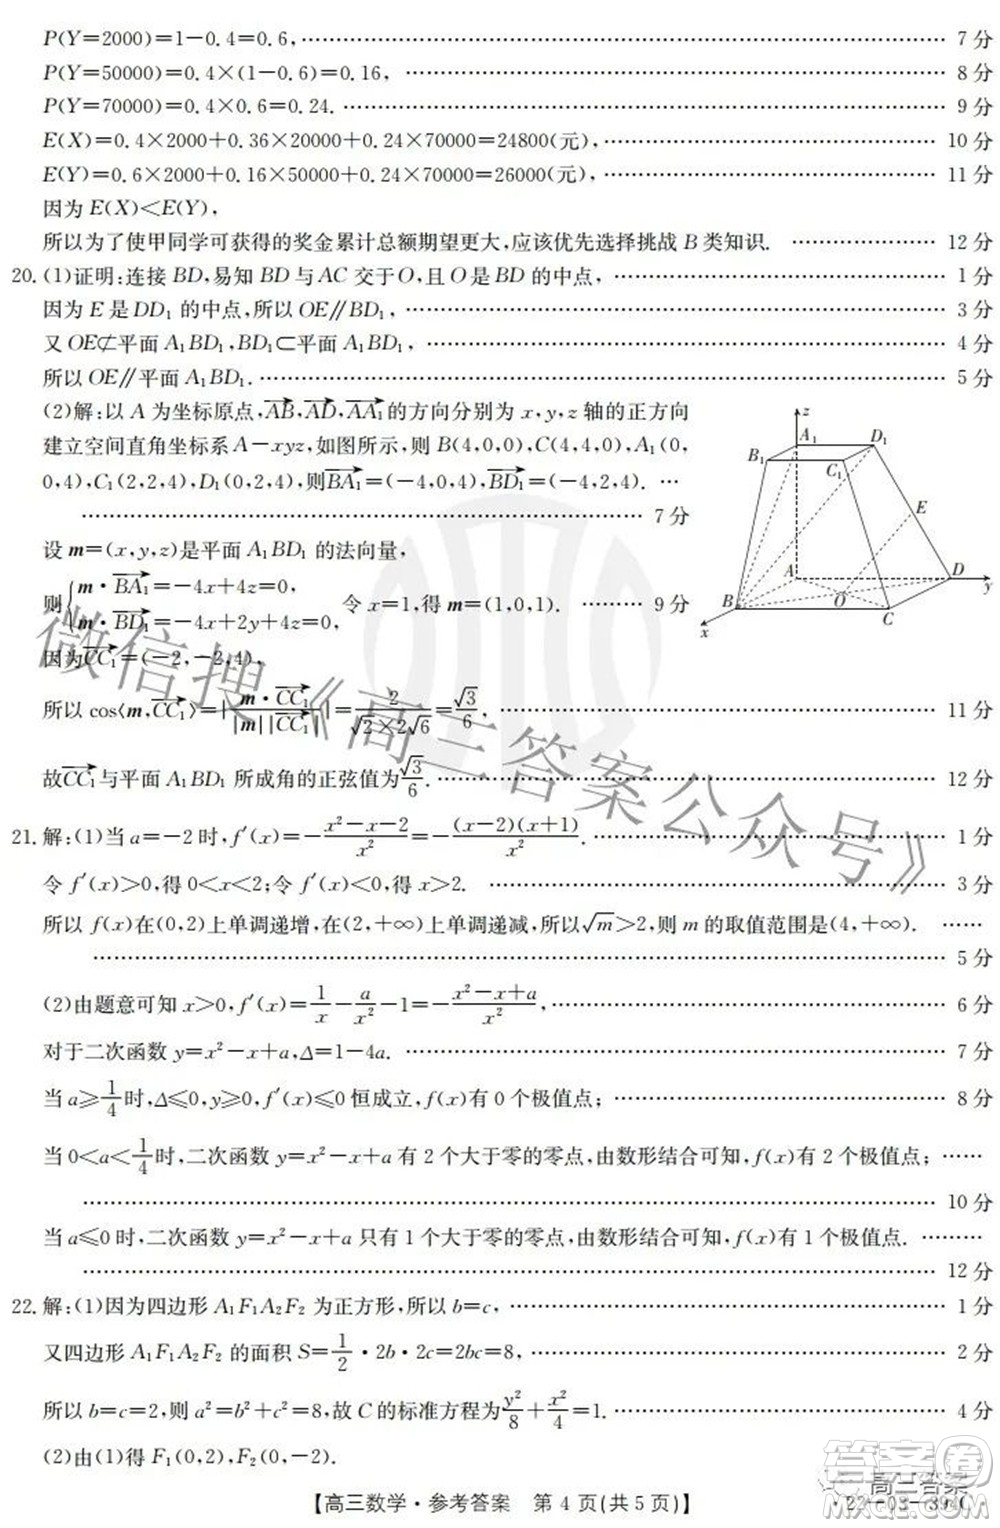 P(Y=2000)=1-0.4=0.6,…… 7分
P(Y=50000)=0.4×(1-0.6)=0.16,…… 8分
P(Y=70000)=0.4×0.6=0.24.…… 9分
E(X)=0.4×2000+0.36×20000+0.24×70000=24800(元),…… 10分
E(Y)=0.6×2000+0.16×50000+0.24×70000=26000(元),…… 11分
因为E(X)<E(Y),
所以为了使甲同学可获得的奖金累计总额期望更大,应该优先选择挑战B类知识.…… 12分
20.(1)证明:连接BD,易知BD与AC交于O,且O是BD的中点,…… 1分
因为E是DD₁的中点,所以OE∥BD₁,…… 3分
又OE⊄平面A₁BD₁,BD₁⊂平面A₁BD₁,…… 4分
所以OE∥平面A₁BD₁.…… 5分
(2)解:以A为坐标原点,AB→,AD→,AA₁→的方向分别为x,y,z轴的正方向
建立空间直角坐标系A-xyz,如图所示,则B(4,0,0),C(4,4,0),A₁(0,
0,4),C₁(2,2,4),D₁(0,2,4),则BA₁→=(-4,0,4),BD₁→=(-4,2,4).…
…… 7分
设m=(x,y,z)是平面A₁BD₁的法向量,
则{m·BA₁→=-4x+4z=0,
m·BD₁→=-4x+2y+4z=0, 令x=1,得m=(1,0,1).…… 9分
因为CC₁→=(-2,-2,4),
所以cos⟨m,CC₁→⟩=|m·CC₁→/|m||CC₁→||=2/(√2×2√6)=√3/6,…… 11分
故CC₁→与平面A₁BD₁所成角的正弦值为√3/6.…… 12分
z
A₁
D₁
B₁
C₁
E
A
D
y
B
O
C
x
21.解:(1)当a=-2时,f′(x)=-(x²-x-2)/x²=-(x-2)(x+1)/x².…… 1分
令f′(x)>0,得0<x<2;令f′(x)<0,得x>2.…… 3分
所以f(x)在(0,2)上单调递增,在(2,+∞)上单调递减,所以√m>2,则m的取值范围是(4,+∞).……
…… 5分
(2)由题意可知x>0,f′(x)=1/x-a/x²-1=-(x²-x+a)/x²,…… 6分
对于二次函数y=x²-x+a,Δ=1-4a.…… 7分
当a≥1/4时,Δ≤0,y≥0,f′(x)≤0恒成立,f(x)有0个极值点;…… 8分
当0<a<1/4时,二次函数y=x²-x+a有2个大于零的零点,由数形结合可知,f(x)有2个极值点;……
…… 10分
当a≤0时,二次函数y=x²-x+a只有1个大于零的零点,由数形结合可知,f(x)有1个极值点.……
…… 12分
22.解:(1)因为四边形A₁F₁A₂F₂为正方形,所以b=c,…… 1分
又四边形A₁F₁A₂F₂的面积S=1/2·2b·2c=2bc=8,…… 2分
所以b=c=2,则a²=b²+c²=8,故C的标准方程为y²/8+x²/4=1.…… 4分
(2)由(1)得F₁(0,2),F₂(0,-2).
【高三数学·参考答案 第4页(共5页)】
22-03-394C
微信搜《高三答案公众号》
高三答案
答案圈
MXQE.COM